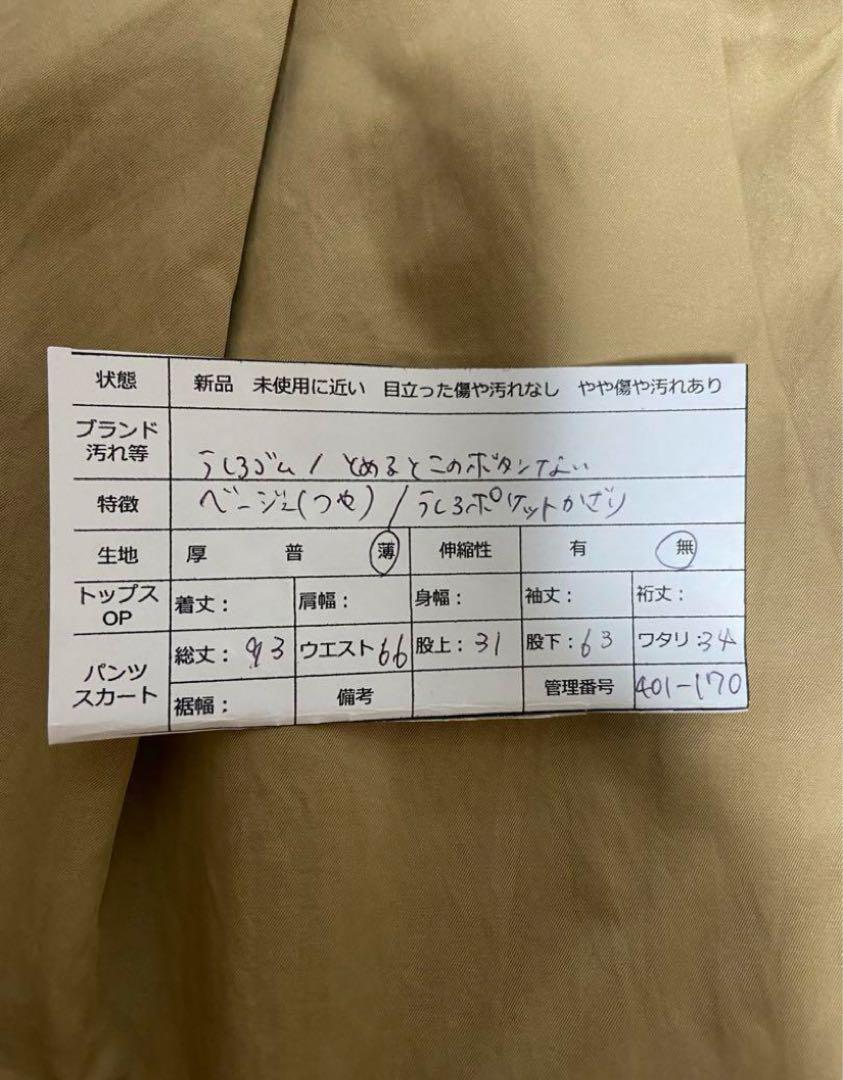 状態 新品 未使用に近い 目立った傷や汚れなし やや傷や汚れあり
ブランド
汚れ等 うしろゴム / とめるとこのボタンてない
特徴 ベージュ(つや) / うしろポケットかざり
生地 厚 普 薄 伸縮性 有 無
トップス
OP 着丈: 肩幅: 身幅: 袖丈: 裄丈:
パンツ
スカート 総丈: 93 ウエスト 66 股上: 31 股下: 63 ワタリ: 34
裾幅: 備考 管理番号 401-170